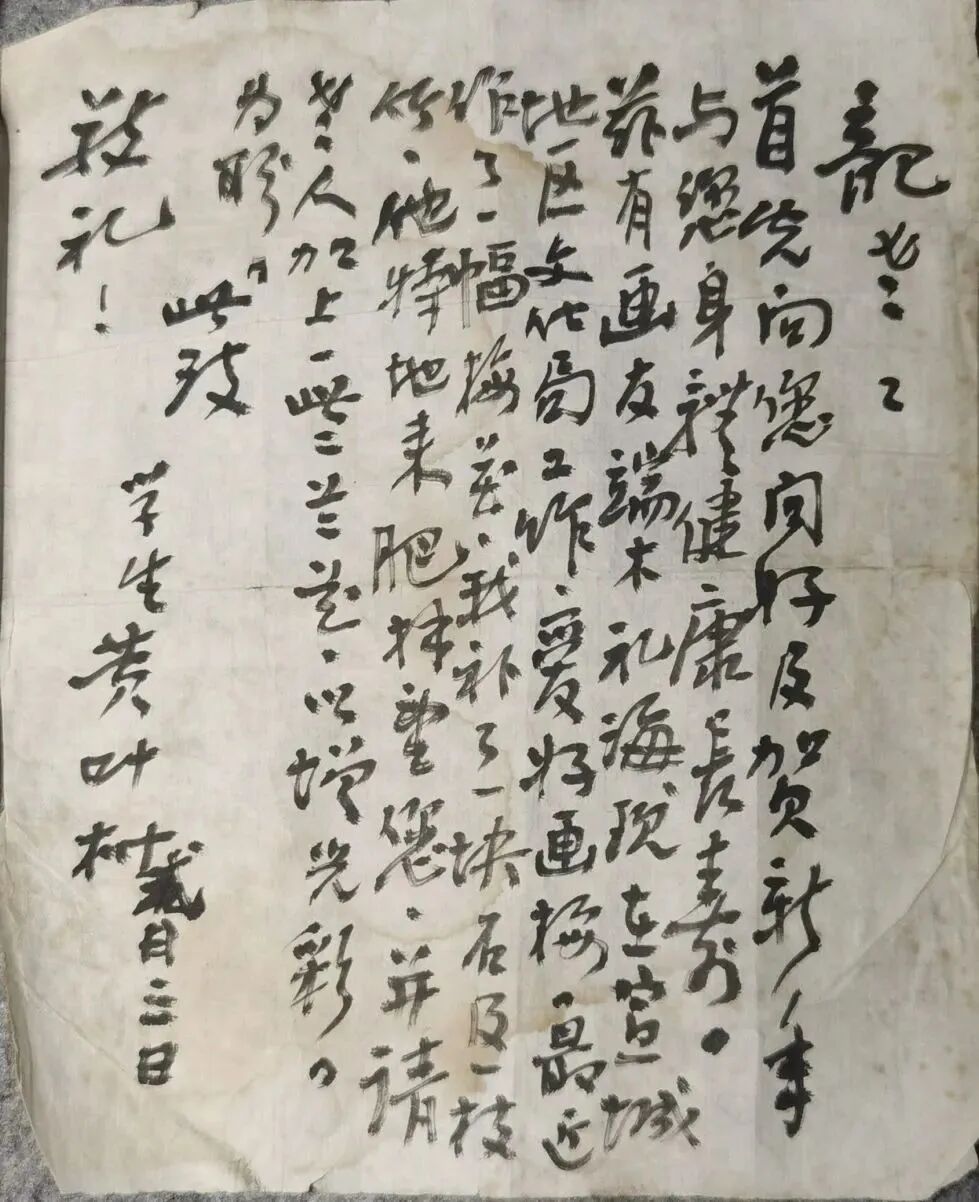 龍老：
首先向您问好及贺新年
与您身體健康長寿。
兹有画友端木礼海现在宣城
地区文化局工作、爱好画梅、最近
作了一幅梅花、我补了一块石及一枝
竹、他特地来肥拜望您、并请
老人加上一些兰花、以增光彩。
为盼。此致
敬礼！
学生黄叶村
十弍月三日